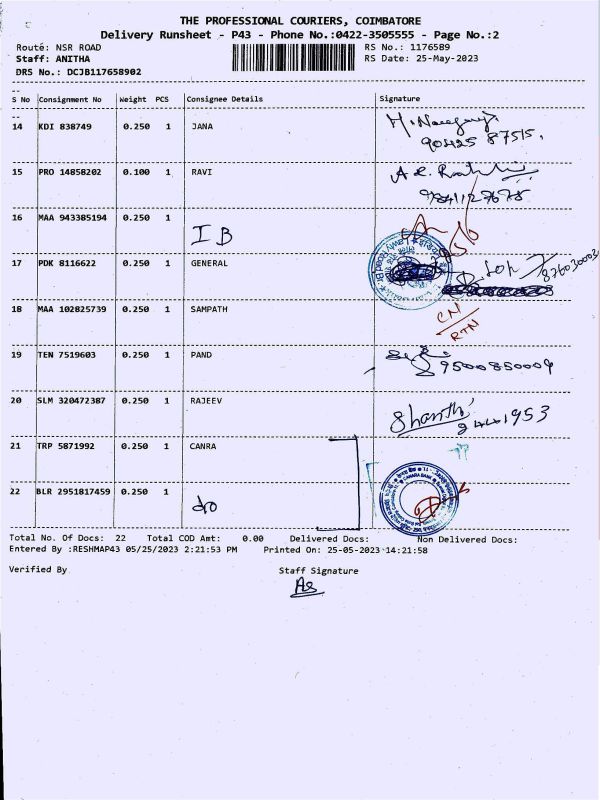 THE PROFESSIONAL COURIERS, COIMBATORE
Delivery Runsheet - P43 - Phone No.:0422-3505555 - Page No.:2
Route: NSR ROAD RS No.: 1176589
Staff: ANITHA RS Date: 25-May-2023
DRS No.: DCJB117658902
S No Consignment No Weight PCS Consignee Details Signature
14 KDI 838749 0.250 1 JANA
90425 87515.
15 PRO 14858202 0.100 1 RAVI
9841127678
16 MAA 943385194 0.250 1
IB
17 PDK 8116622 0.250 1 GENERAL
18 MAA 102825739 0.250 1 SAMPATH
CN
RTN
19 TEN 7519603 0.250 1 PAND
9500850009
20 SLM 320472387 0.250 1 RAJEEV
Shanthi
21 TRP 5871992 0.250 1 CANRA
22 BLR 2951817459 0.250 1 do
CANARA BANK
Total No. Of Docs: 22 Total COD Amt: 0.00 Delivered Docs: Non Delivered Docs:
Entered By :RESHMAP43 05/25/2023 2:21:53 PM Printed On: 25-05-2023 14:21:58
Verified By Staff Signature